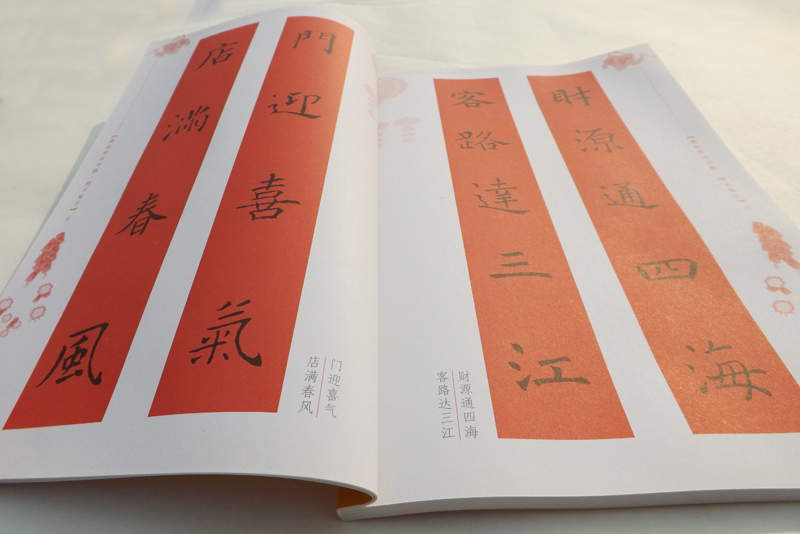 門迎喜氣
店滿春風
门迎喜气
店满春风
財源通四海
客路達三江
财源通四海
客路达三江